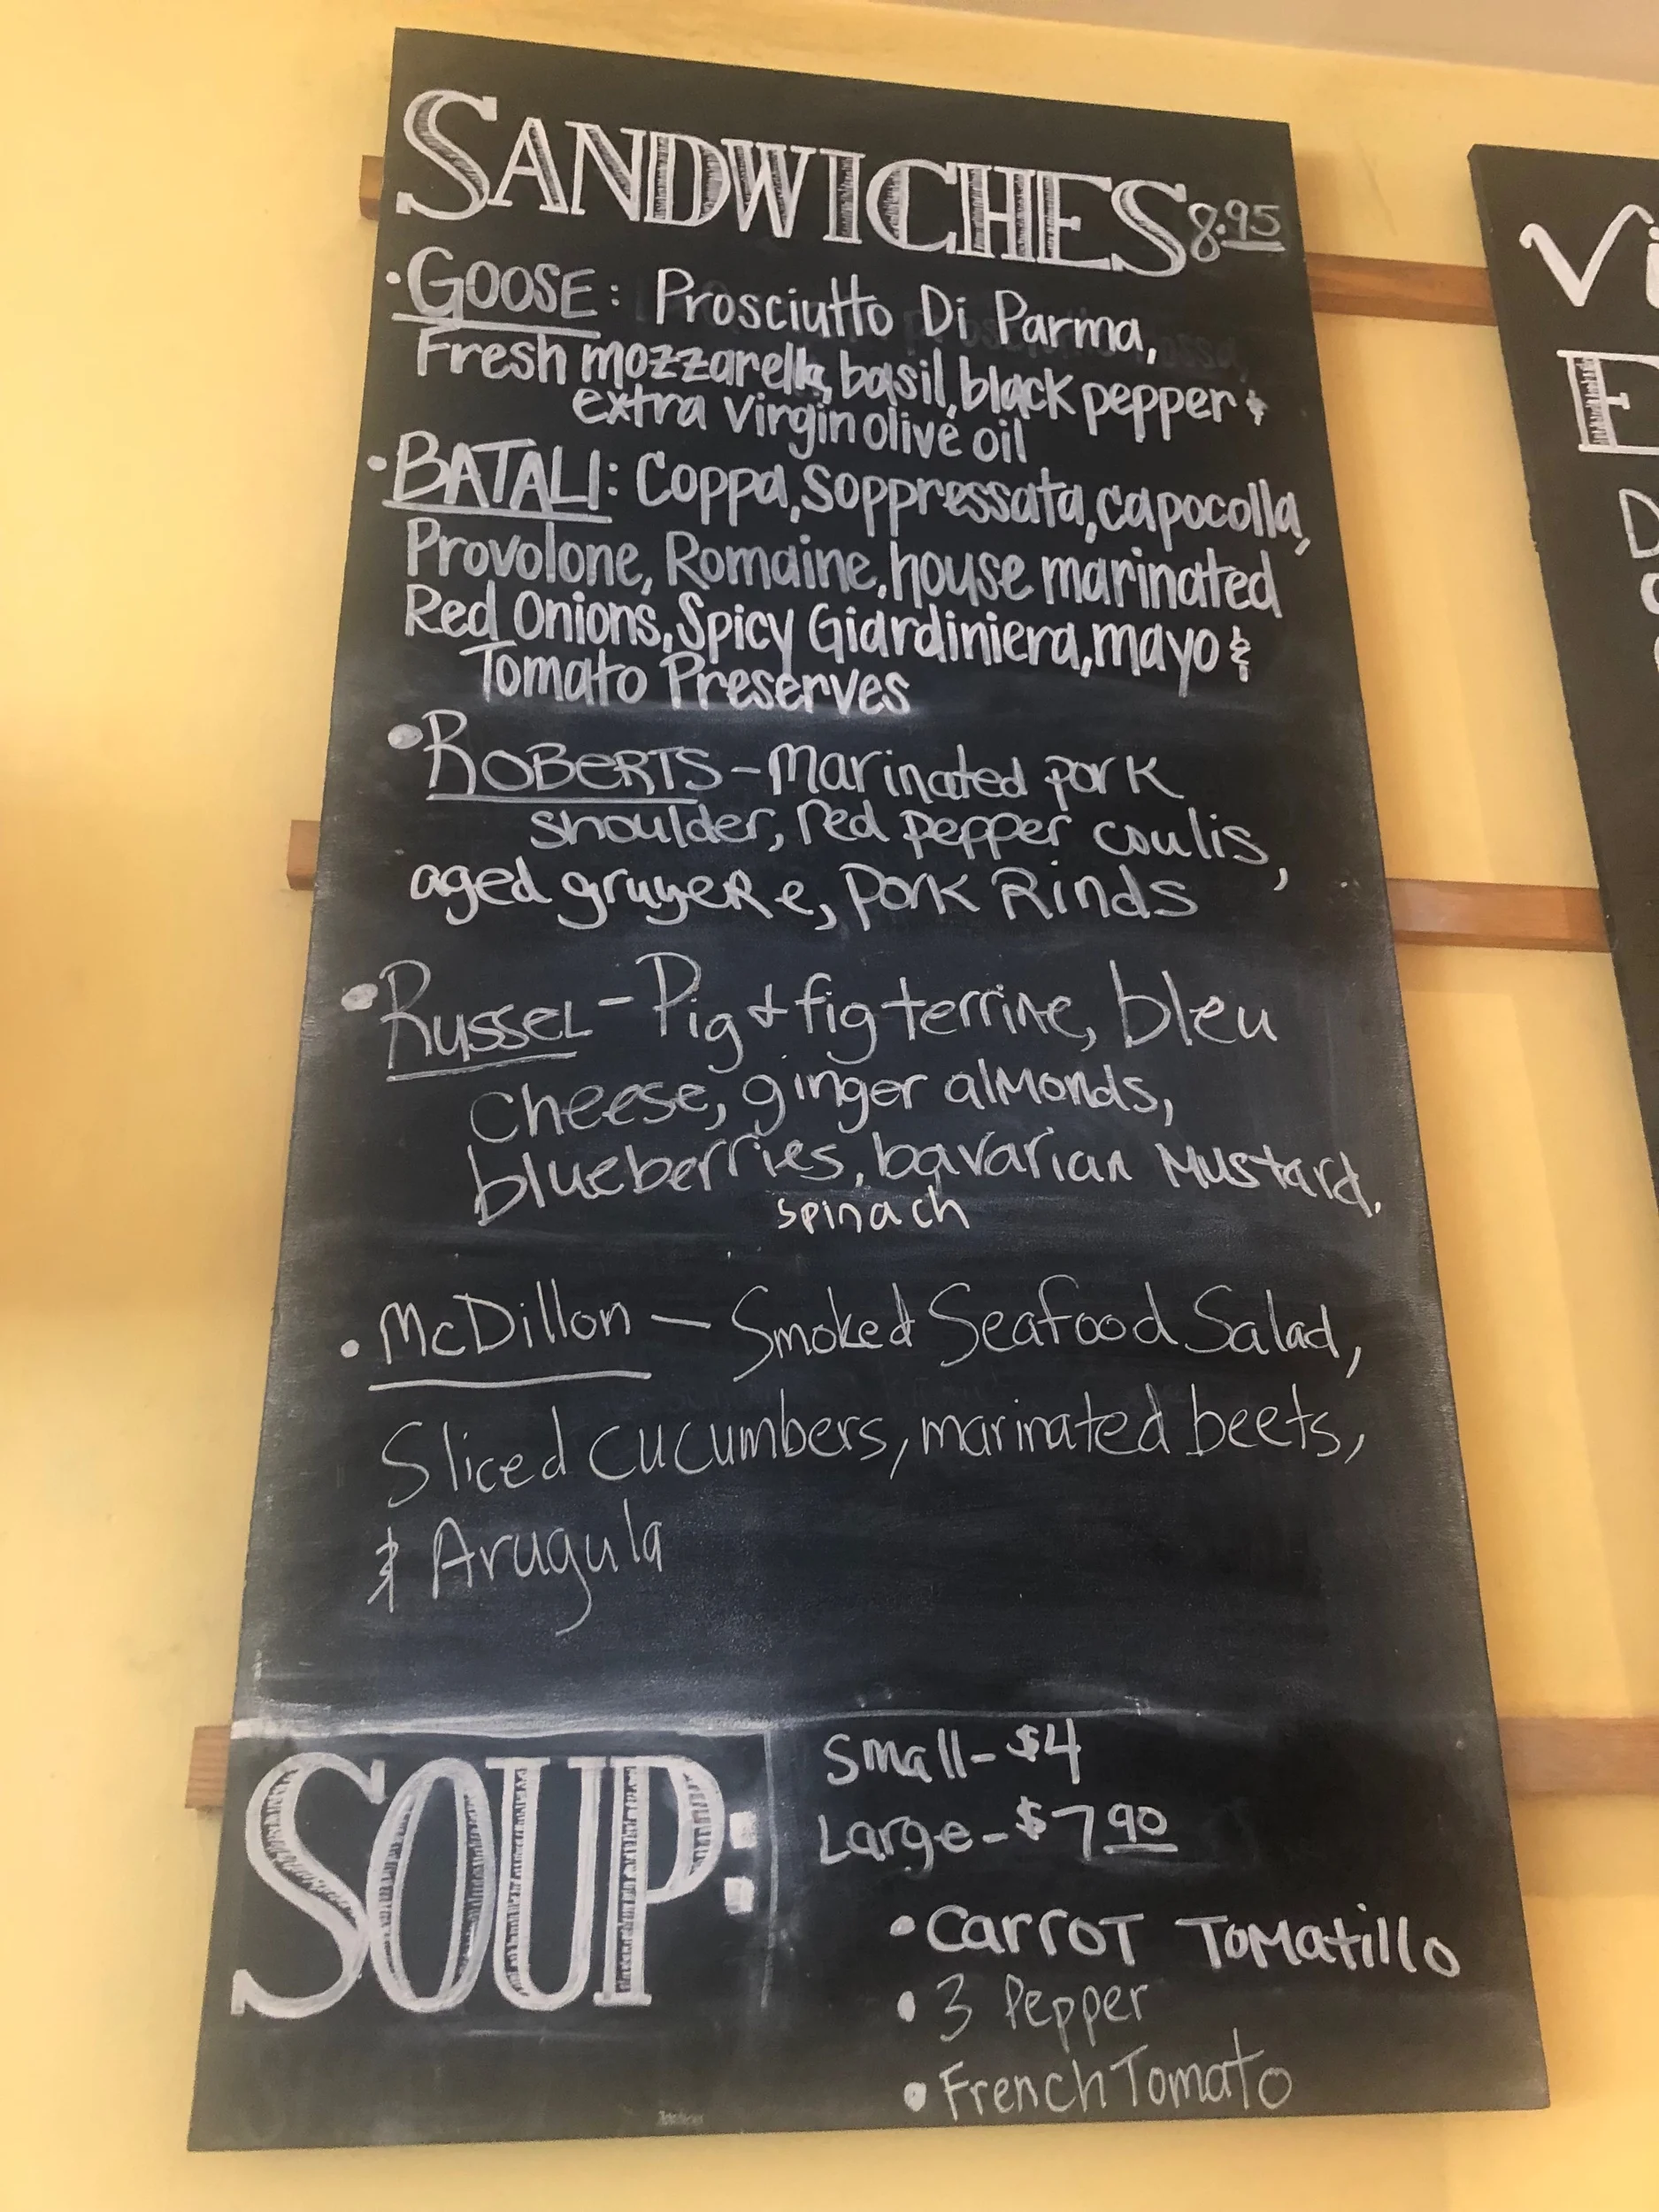 SANDWICHES 8.95
• GOOSE: Prosciutto Di Parma,
Fresh mozzarella, basil, black pepper &
extra virgin olive oil
• BATALI: Coppa, Soppressata, capocolla,
Provolone, Romaine, house marinated
Red Onions, Spicy Giardiniera, mayo &
Tomato Preserves
• ROBERTS - Marinated pork
shoulder, red pepper coulis,
aged gruyeRe, pork Rinds
• Russel - Pig & fig terrine, bleu
cheese, ginger alMonds,
blueberries, bavarian Mustard,
spinach
• McDillon — Smoked Seafood Salad,
Sliced cucumbers, marinated beets,
& Arugula
SOUP:
Small - $4
Large - $7 90
• Carrot Tomatillo
• 3 Pepper
• French Tomato
Vi
E
D